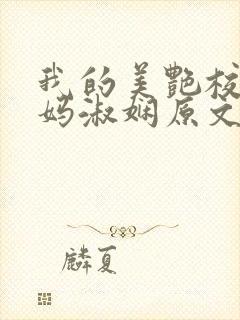 我的美艷校
妈淑娴原文
麟夏